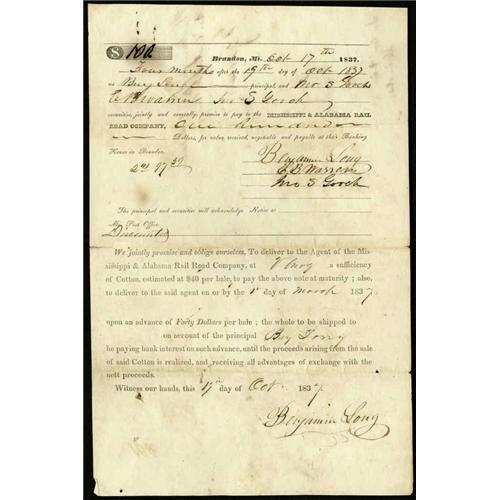 $ 100
Brandon, Mi. Oct 17th 1837.
Four Months after the 17th day of Oct 1837
as Benj Long principal, and Jno S Gooch
E B Warren Jno S Gooch
securities, jointly and severally promise to pay to the MISSISSIPPI & ALABAMA RAIL
ROAD COMPANY, One Hundred
Dollars, for value received, negotiable and payable at their Banking
House in Brandon.
Benjamin Long
E B Warren
Jno S Gooch
The principal and securities will acknowledge Notice at
Post Office
Discounted
We jointly promise and oblige ourselves, To deliver to the Agent of the Mis-
sissippi & Alabama Rail Road Company, at a sufficiency
of Cotton, estimated at $40 per bale, to pay the above note at maturity; also,
to deliver to the said agent on or by the 1st day of March 1837
upon an advance of Forty Dollars per bale; the whole to be shipped to
on account of the principal Benj Long
he paying bank interest on such advance, until the proceeds arising from the sale
of said Cotton is realized, and receiving all advantages of exchange with the
nett proceeds.
Witness our hands, this 17th day of Oct 1837
Benjamin Long